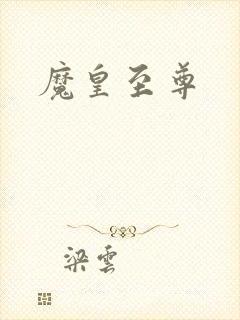 魔皇至尊
梁雲